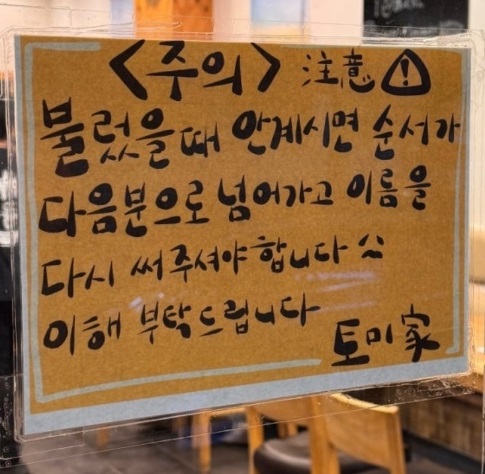 <주의> 注意 ⚠
불렀을때 안계시면 순서가
다음분으로 넘어가고 이름을
다시 써주셔야합니다 ^^
이해 부탁드립니다
토미家